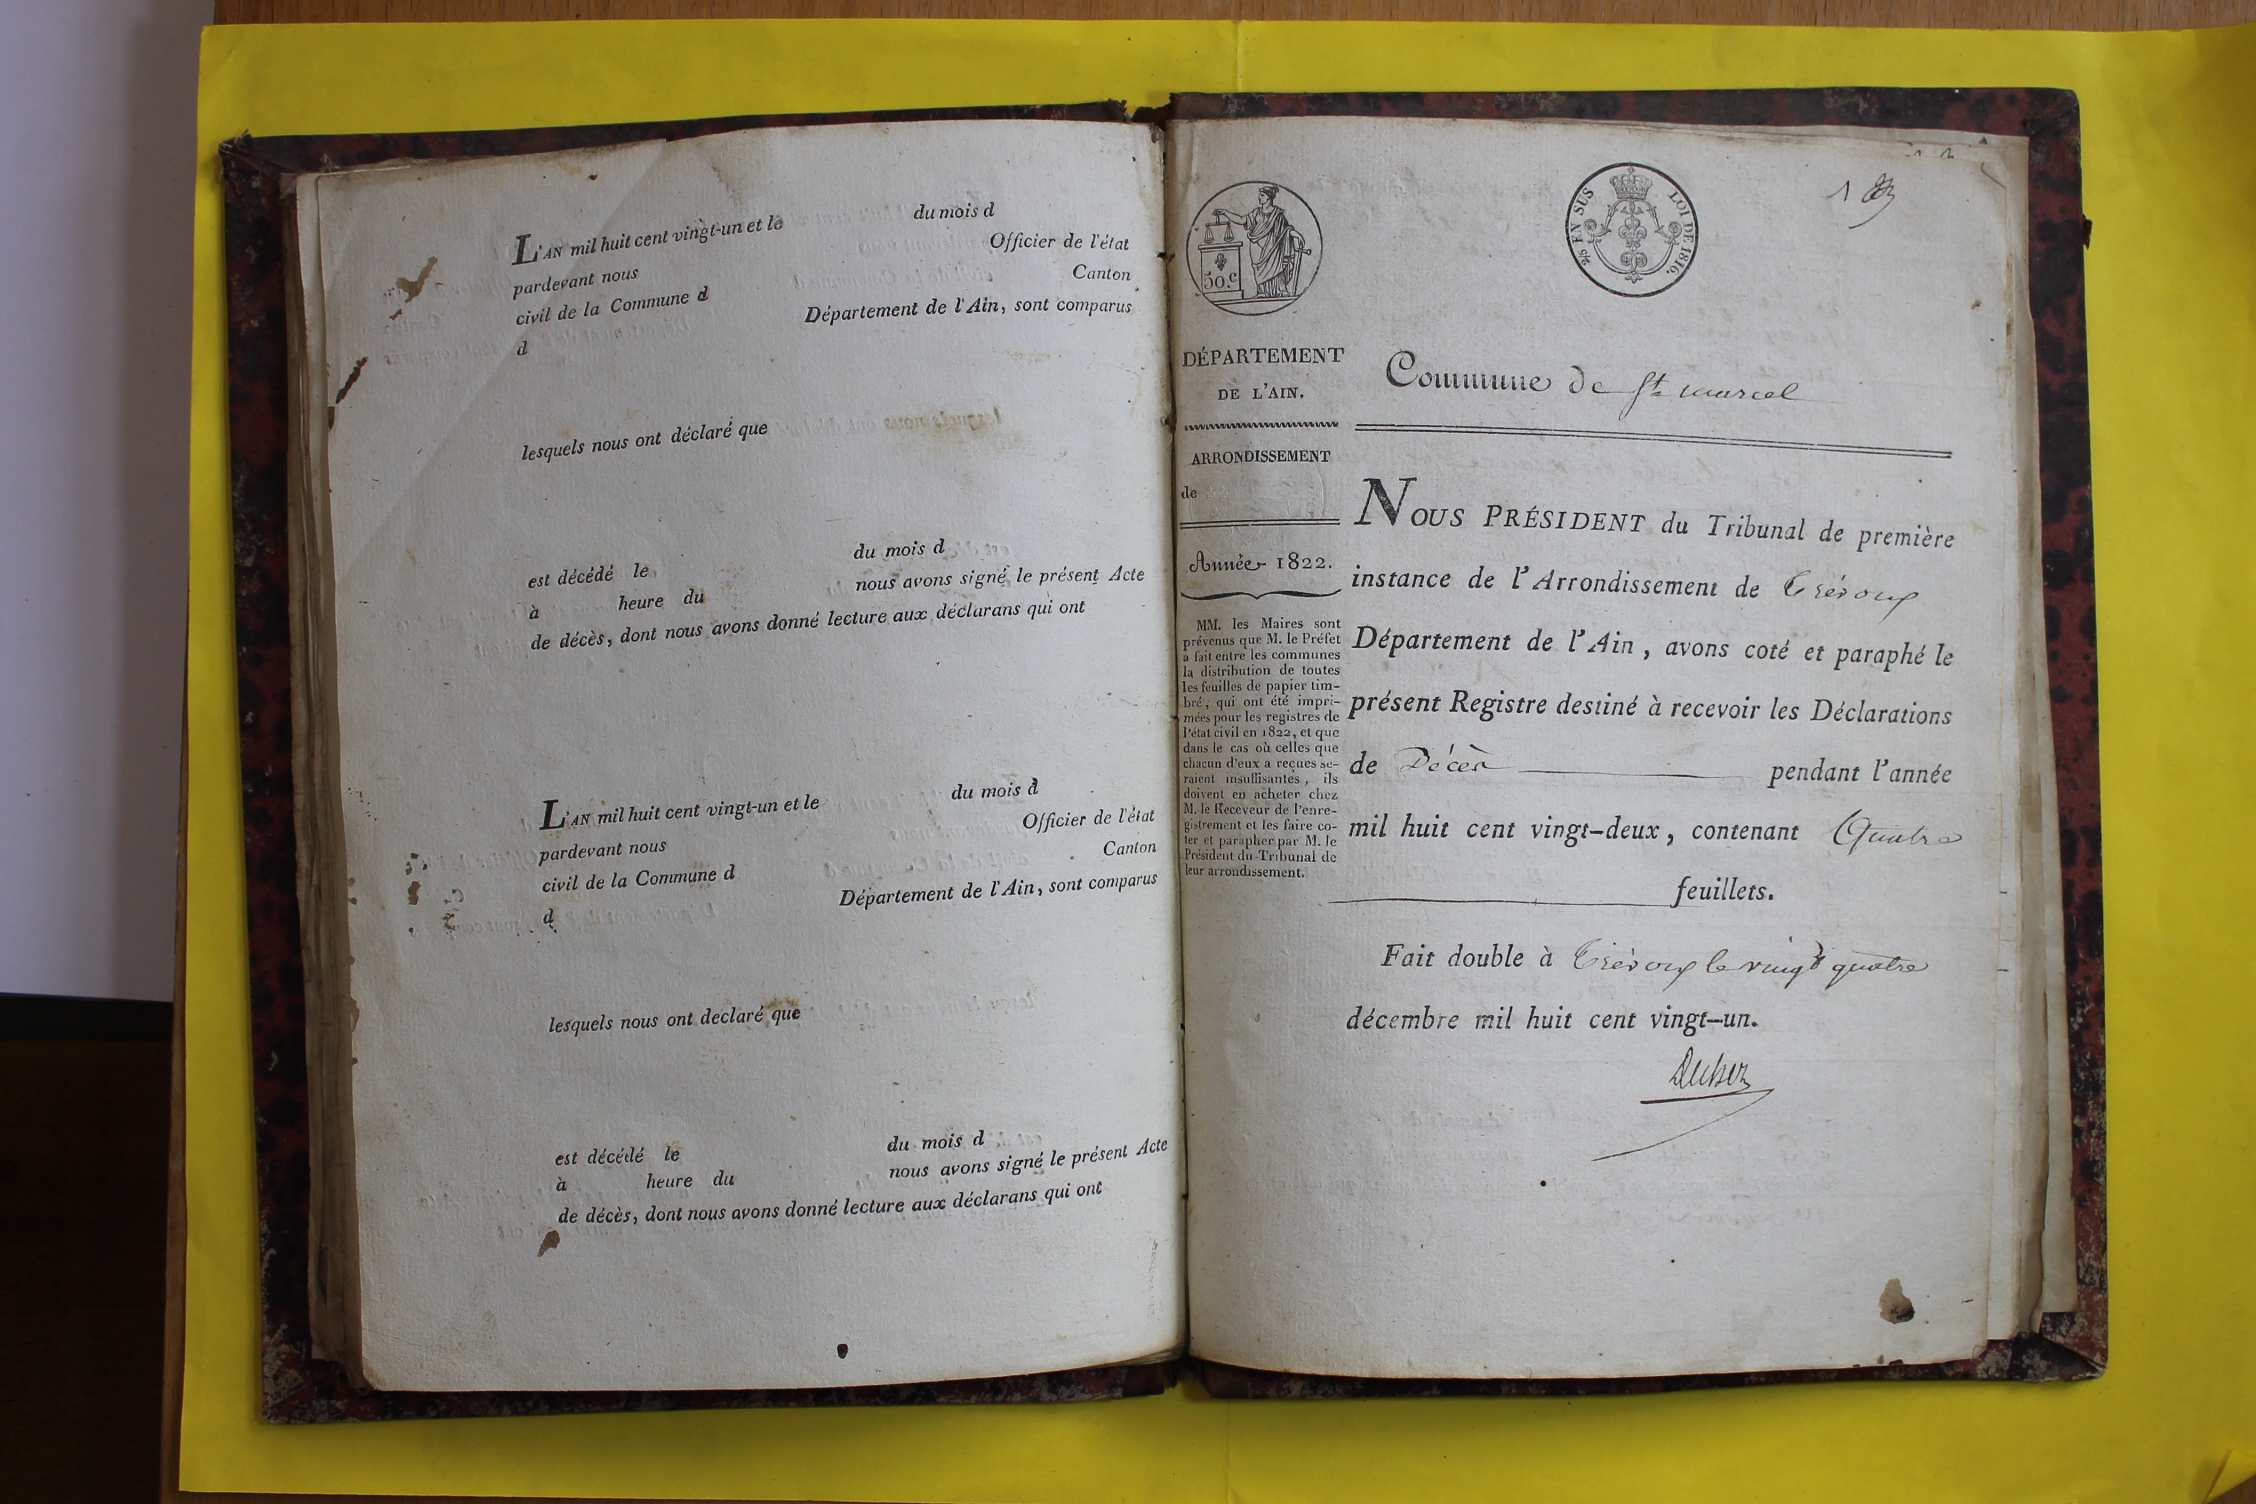 L'AN mil huit cent vingt-un et le du mois d
pardevant nous Officier de l'état
civil de la Commune d Canton
d Département de l'Ain, sont comparus
lesquels nous ont déclaré que
est décédé le du mois d
à heure du nous avons signé le présent Acte
de décès, dont nous avons donné lecture aux déclarans qui ont
L'AN mil huit cent vingt-un et le du mois d
pardevant nous Officier de l'état
civil de la Commune d Canton
d Département de l'Ain, sont comparus
lesquels nous ont declaré que
est décédé le du mois d
à heure du nous avons signé le présent Acte
de décès, dont nous avons donné lecture aux déclarans qui ont
50.c
2/5 EN SUS LOI DE 1816.
1
DÉPARTEMENT
DE L'AIN.
ARRONDISSEMENT
de
Année 1822.
MM. les Maires sont
prévenus que M. le Préfet
a fait entre les communes
la distribution de toutes
les feuilles de papier tim-
bré, qui ont été impri-
mées pour les registres de
l'état civil en 1822, et que
dans le cas où celles que
chacun d'eux a reçues se-
raient insuffisantes, ils
doivent en acheter chez
M. le Receveur de l'enre-
gistrement et les faire co-
ter et parapher par M. le
Président du Tribunal de
leur arrondissement.
Commune de St marcel
NOUS PRÉSIDENT du Tribunal de première
instance de l'Arrondissement de Trévoux
Département de l'Ain, avons coté et paraphé le
présent Registre destiné à recevoir les Déclarations
de Décès pendant l'année
mil huit cent vingt-deux, contenant Quatre
feuillets.
Fait double à Trévoux le vingt quatre
décembre mil huit cent vingt-un.